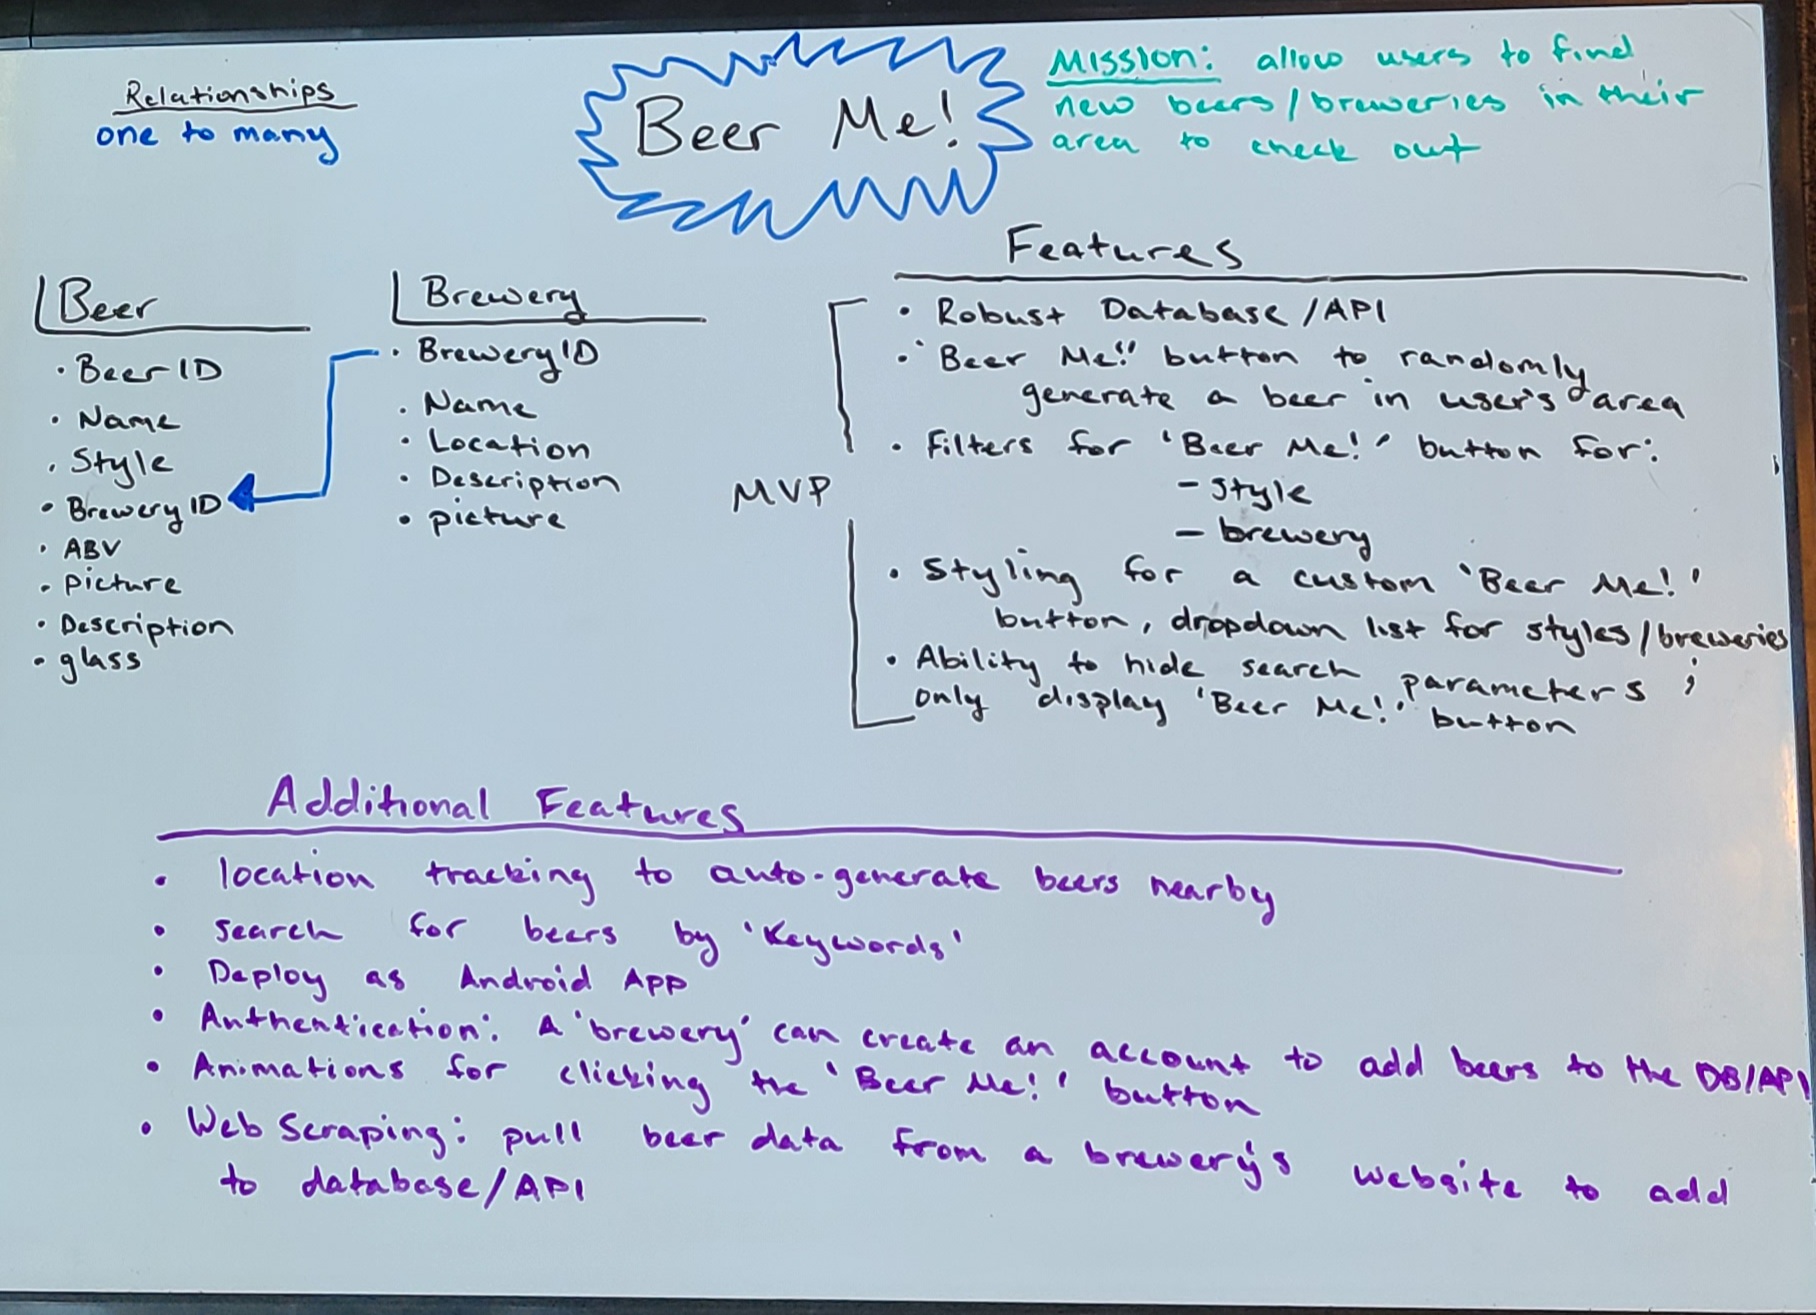 Relationships
one to many
Beer Me!
Mission: allow users to find
new beers/breweries in their
area to check out
Beer
• Beer ID
• Name
• Style
• Brewery ID
• ABV
• picture
• Description
• glass
Brewery
• Brewery ID
• Name
• Location
• Description
• picture
Features
MVP
• Robust Database/API
• 'Beer Me!' button to randomly
generate a beer in user's area
• Filters for 'Beer Me!' button for:
- style
- brewery
• Styling for a custom 'Beer Me!'
button, dropdown list for styles/breweries
• Ability to hide search parameters ;
only display 'Beer Me!' button
Additional Features
• location tracking to auto-generate beers nearby
• search for beers by 'Keywords'
• Deploy as Android App
• Authentication: A 'brewery' can create an account to add beers to the DB/API
• Animations for clicking the 'Beer Me!' button
• Web Scraping: pull beer data from a brewery's website to add
to database/API